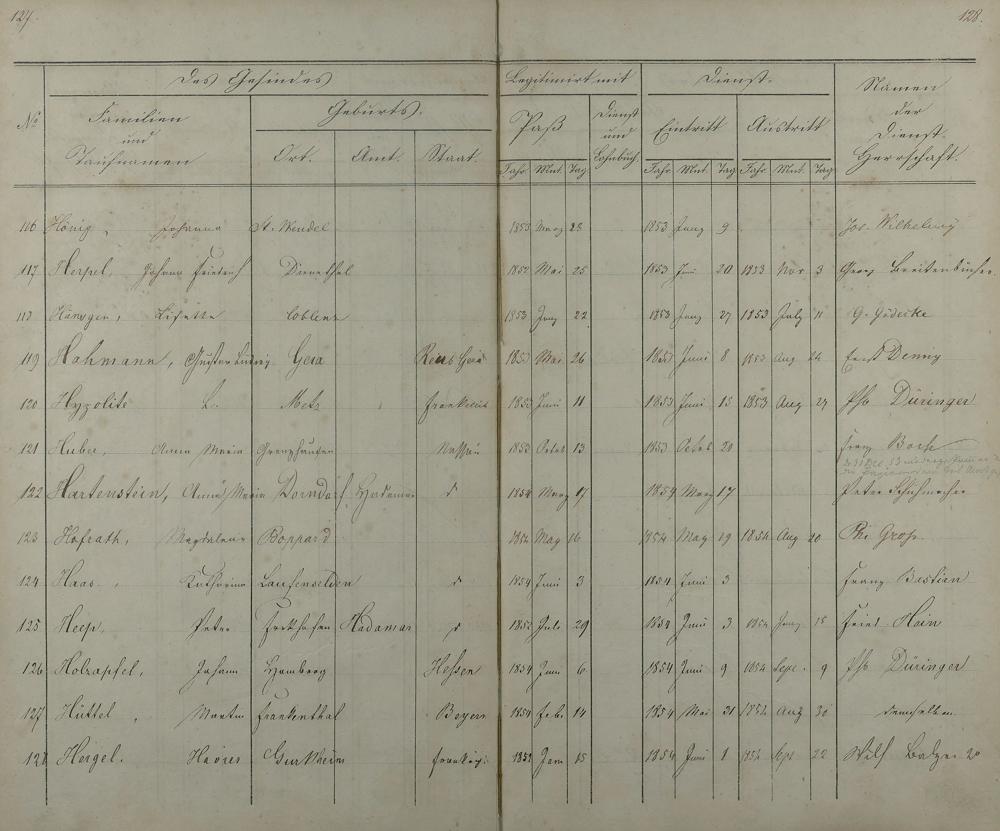 127.
128.
Des Gesindes
Legitimirt mit
Dienst-
Namen der Dienst-Herrschaft.
No
Familien und Taufnamen
Geburts.
Paß
Dienst und Lohnbüch.
Eintritt
Austritt
Ort. Amt. Staat.
Jahr Mnt. Tag Jahr Mnt. Tag Jahr Mnt. Tag
116 Hönig, Johanna St. Wendel 1853 Marz 28 1853 Juny 9 Jos. Wilhelmy
117 Herpel, Johann Friedrich 1852 Mai 25 1853 Juni 20 1853 Nov 3 Georg
118 Lisette Coblenz 1853 Juny 22 1853 Juny 27 1853 July 11 G. Gödecke
119 Hahmann, Gustav Ludwig Gera Reus Gera 1853 Mai 26 1853 Juni 8 1853 Aug 24 Ernst Denny
120 Hypolite L. Metz Frankreich 1853 Juni 11 1853 Juni 15 1853 Aug 27 Phb Düringer
121 Huber, Anna Maria Grenzhausen Nassau 1853 Octob 13 1853 Octob 20 Franz Boch
122 Hartenstein, Anna Maria Dorndorf Hadamar d 1854 Marz 17 1854 Marz 17 Peter Schuhmacher
123 Hofrath, Magdalena Boppard 1854 May 16 1854 May 19 1854 Aug 20 Phi Groß
124 Haas, Katharina Laufenselden d 1854 Juni 3 1854 Juni 3 Franz Bastien
125 Heep, Peter Hadamar d 1852 Juli 29 1854 Juni 3 1854 Juny 15 Fried. Hain
126 Holzapfel, Johann Homberg Hessen 1854 Juni 6 1854 Juni 9 1854 Sept. 9 Phb Düringer
127 Hüttel, Martin Frankenthal Beyern 1854 Feb. 14 1854 Mai 31 1854 Aug 30 demselben
128 Hergel. Xavier 1853 Jan 15 1854 Juni 1 1854 Sept 22 Wilh